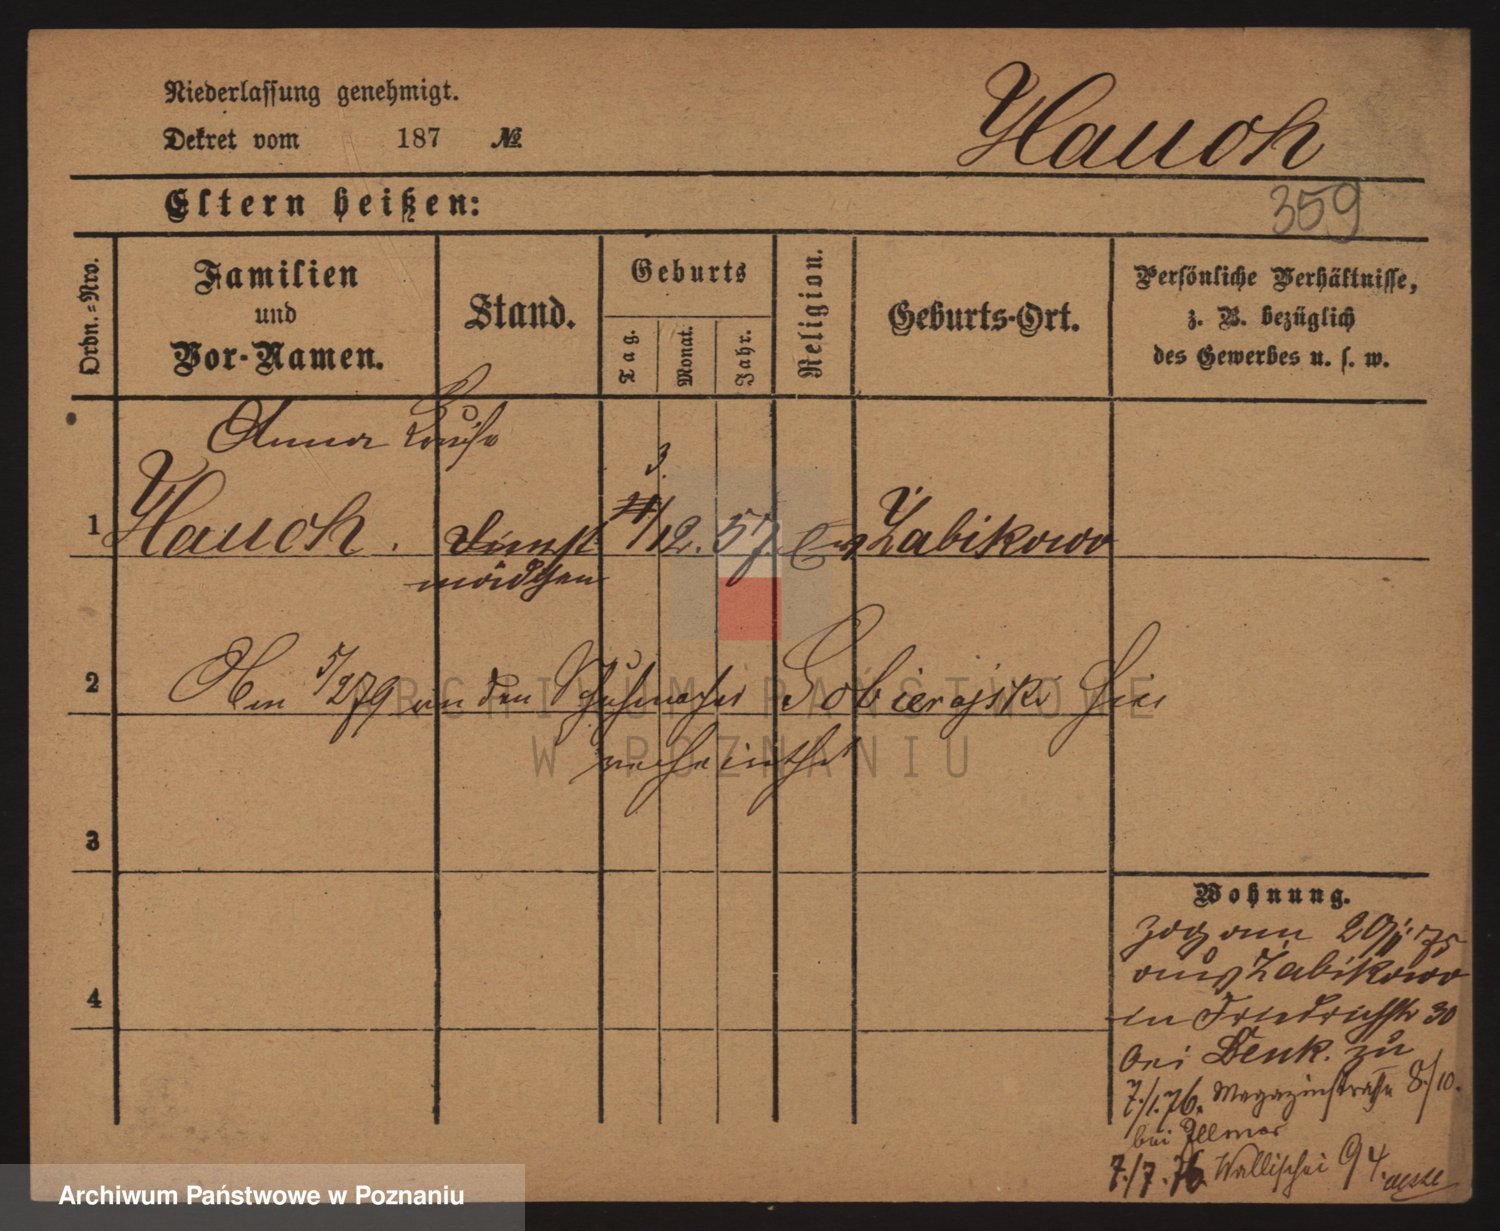 Niederlassung genehmigt.
Dekret vom 187 №
Hauch
359
Eltern heißen:
Ordn.=Nro.
Familien
und
Vor-Namen.
Stand.
Geburts
Tag.
Monat.
Jahr.
Religion.
Geburts-Ort.
Persönliche Verhältnisse,
z. B. bezüglich
des Gewerbes u. s. w.
Anna Louise
3.
1 Hauch. Dienst 12. 57. Ev Zabikowo
mädchen
2 Am 5/2 79 an den Schuhmacher hier
verheirathet
3
4
Wohnung.
zog am 29/11 75
aus Zabikowo
in Friedrichstr 30
bei Denk. zu
7./1. 76. Magazinstraße 8./10.
bei Illmer
7./7. 76. Wallischei 94.
ARCHIWUM PAŃSTWOWE
W POZNANIU
Archiwum Państwowe w Poznaniu